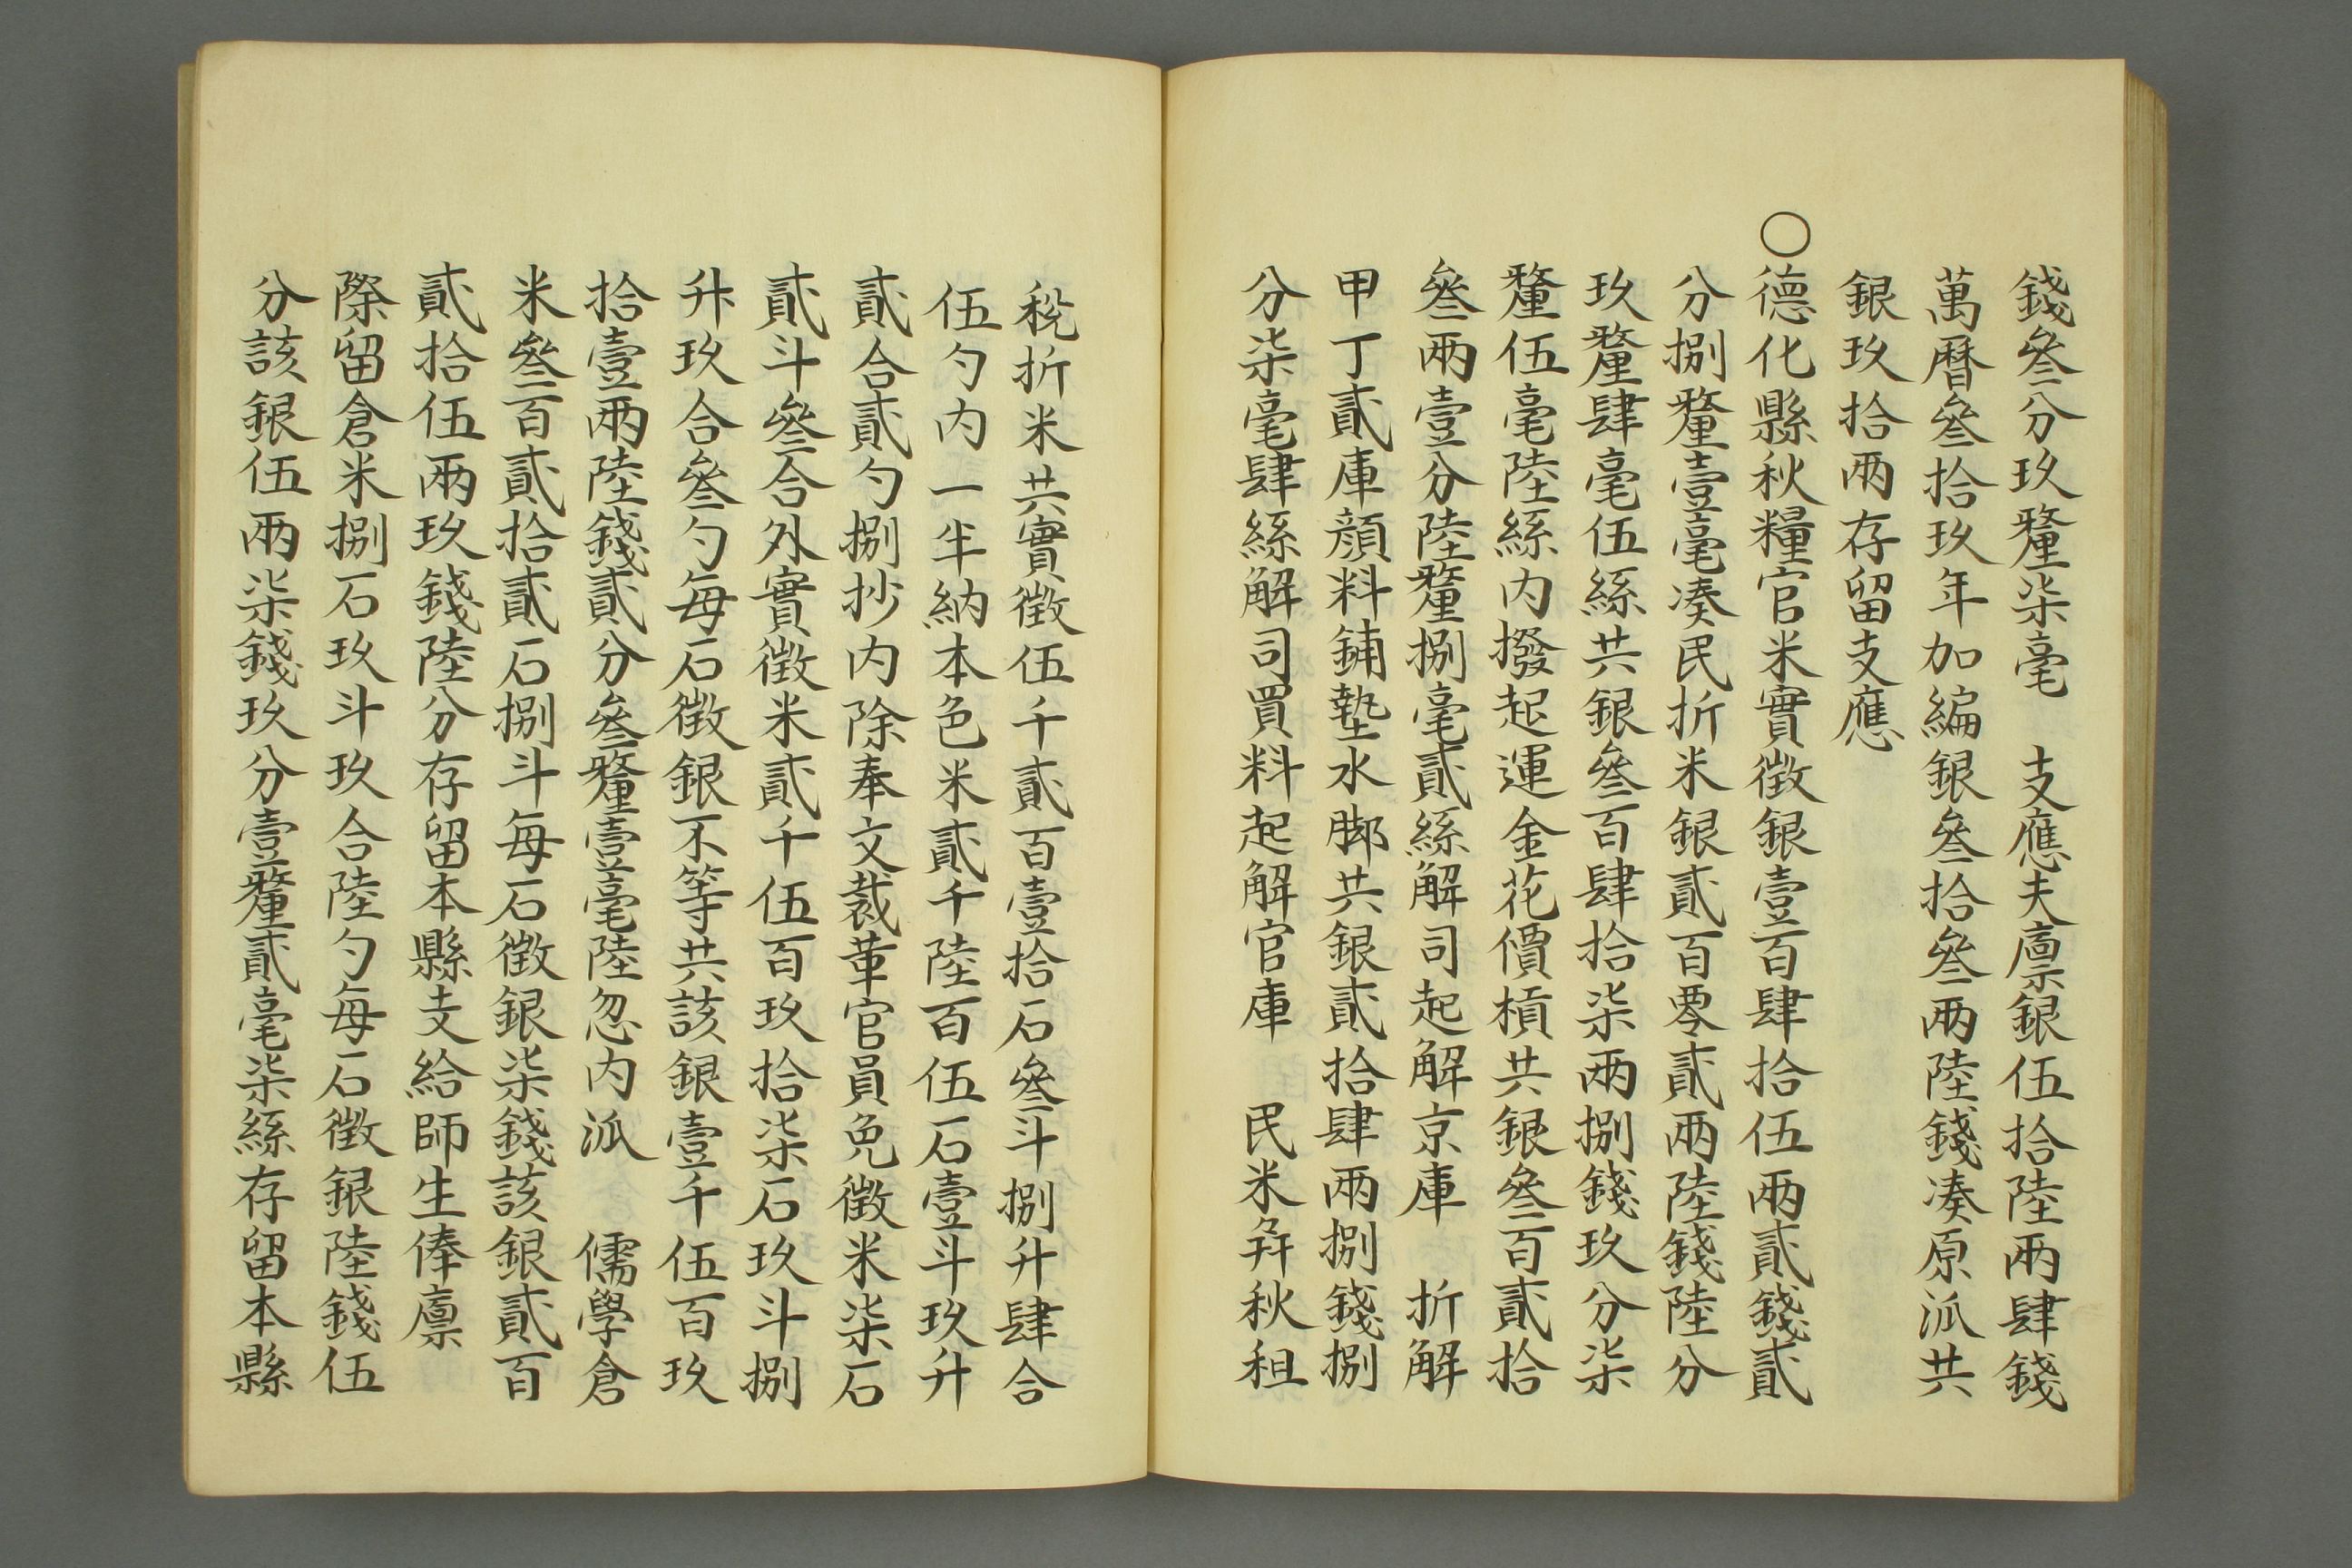 錢叄分玖釐柒毫　支應夫廪銀伍拾陸兩肆錢
萬曆叄拾玖年加編銀叄拾叄兩陸錢凑原派共
銀玖拾兩存留支應
〇德化縣秋糧官米實徵銀壹百肆拾伍兩貳錢貳
分捌釐壹毫凑民折米銀貳百零貳兩陸錢陸分
玖釐肆毫伍絲共銀叄百肆拾柒兩捌錢玖分柒
釐伍毫陸絲内撥起運金花價槓共銀叄百貳拾
叄兩壹分陸釐捌毫貳絲解司起解京庫　折解
甲丁貳庫顔料鋪墊水脚共銀貳拾肆兩捌錢捌
分柒毫肆絲解司買料起解官庫　民米弁秋租
稅折米共實徵伍千貳百壹拾石叄斗捌升肆合
伍勺内一半納本色米貳千陸百伍石壹斗玖升
貳合貳勺捌抄内除奉文裁革官員免徵米柒石
貳斗叄合外實徵米貳千伍百玖拾柒石玖斗捌
升玖合叄勺每石徵銀不等共該銀壹千伍百玖
拾壹兩陸錢貳分叄釐壹毫陸忽内派　儒學倉
米叄百貳拾貳石捌斗每石徵銀柒錢該銀貳百
貳拾伍兩玖錢陸分存留本縣支給師生俸廪
際留倉米捌石玖斗玖合陸勺每石徵銀陸錢伍
分該銀伍兩柒錢玖分壹釐貳毫柒絲存留本縣